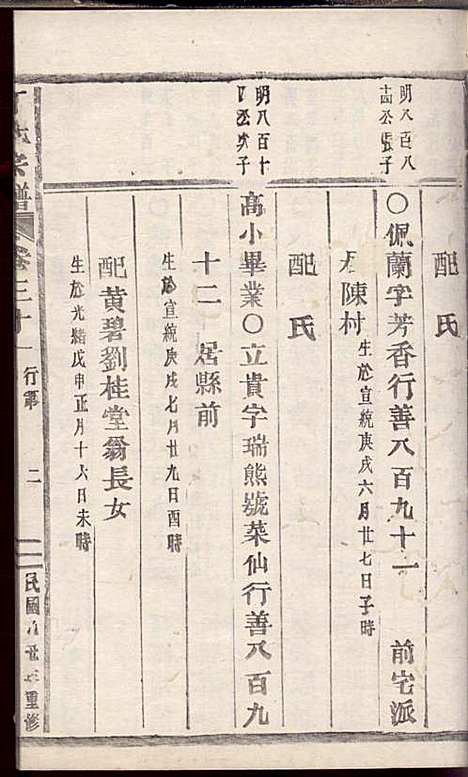 配氏
明八百八
公張子
〇佩蘭字芳香行善八百九十一 前宅派
居陳村 生於宣統庚戌六月廿七日子時
配氏
明八百十
公次子
高小畢業〇立貴字瑞熊號菜仙行善八百九
十二 居縣前
生於宣統庚戌七月廿九日酉時
配黄碧劉桂堂翁長女
生於光緒戊申正月十六日未時
宗譜 卷三十一 行第 二 民國重修